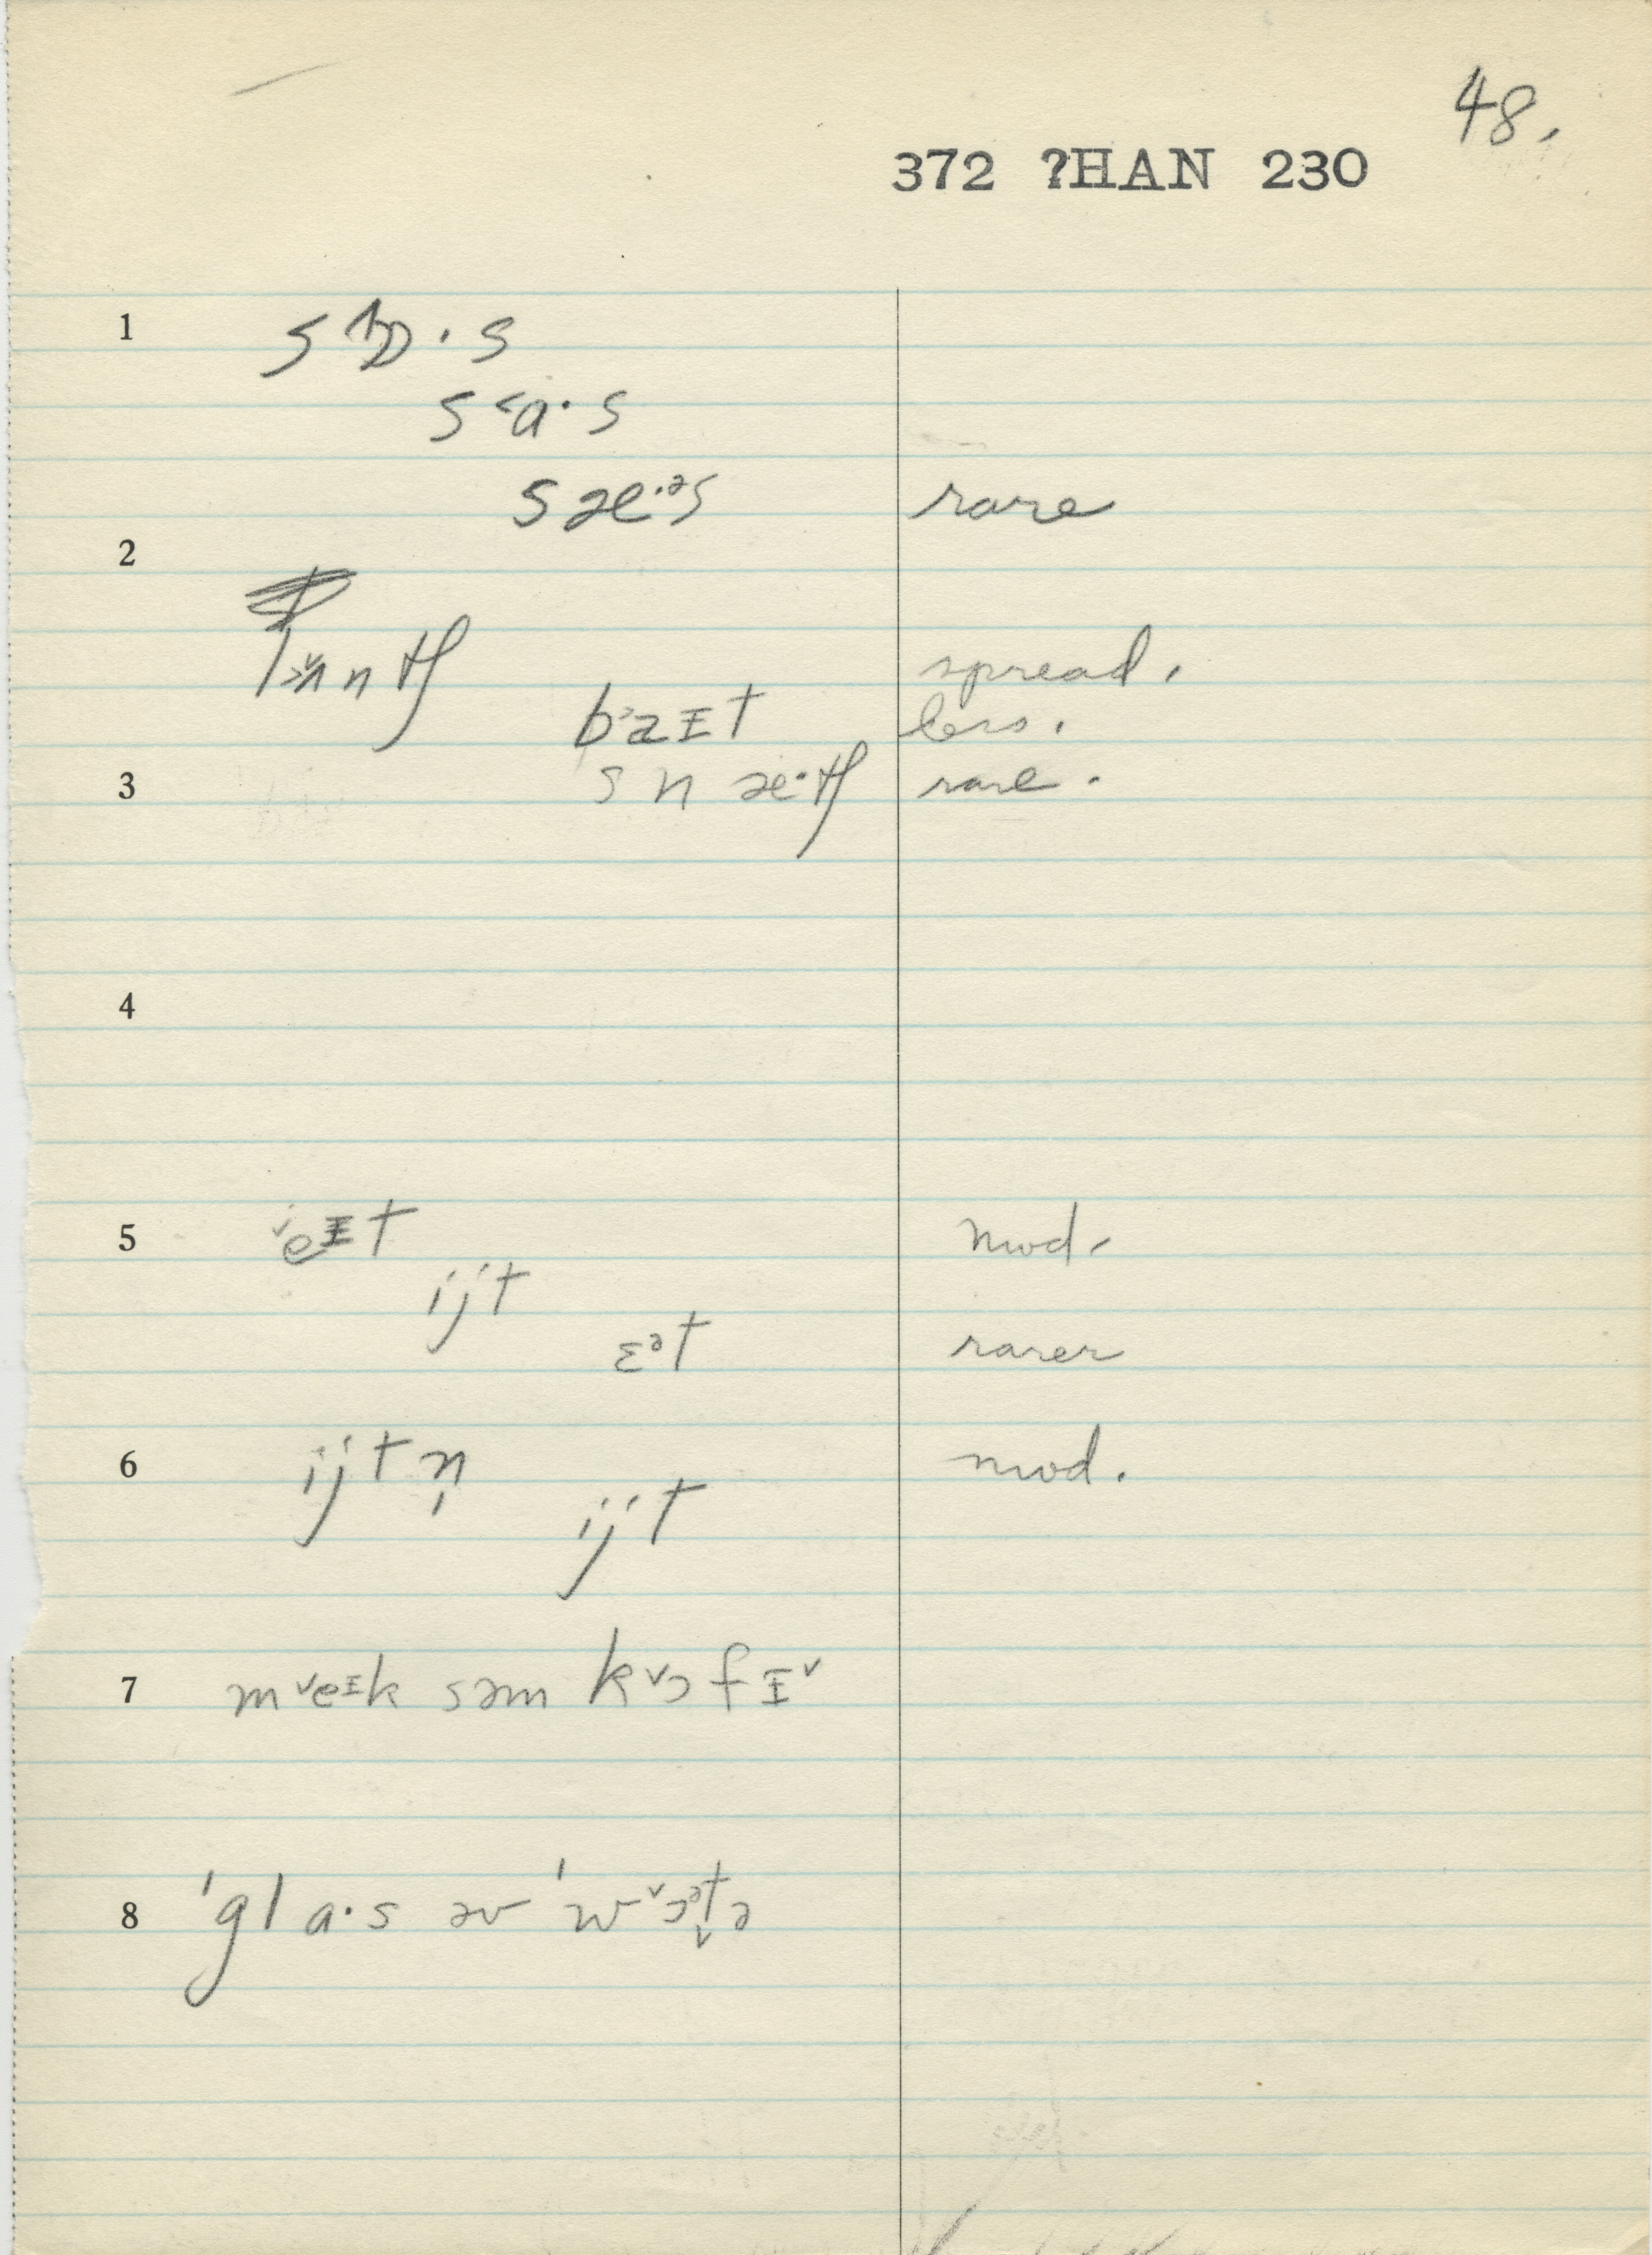 48.
372 ?HAN 230
1 s ɒ · s
s ˂a· s
s æ·ᵊs rare
2
l ʌ n tʃ spread.
b˃aɪt less.
3 s n æ·tʃ rare.
4
5 ˇeɪt mod.
ijt
ɛᵊt rarer
6 ijtn̩ mod.
ijt
7 mˇeɪk səm kˇɔfɪˇ
8 ˈgla·s əv ˈwˇɔᵊt̬ə